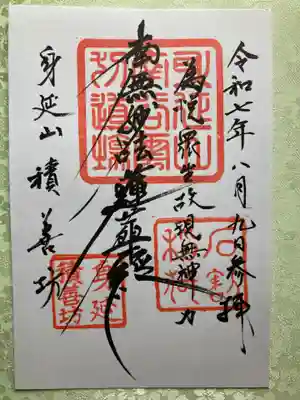 令和七年八月九日参拝
為悦衆生故現無神力
南無妙法蓮華経
身延山 積善坊
身延
積善坊